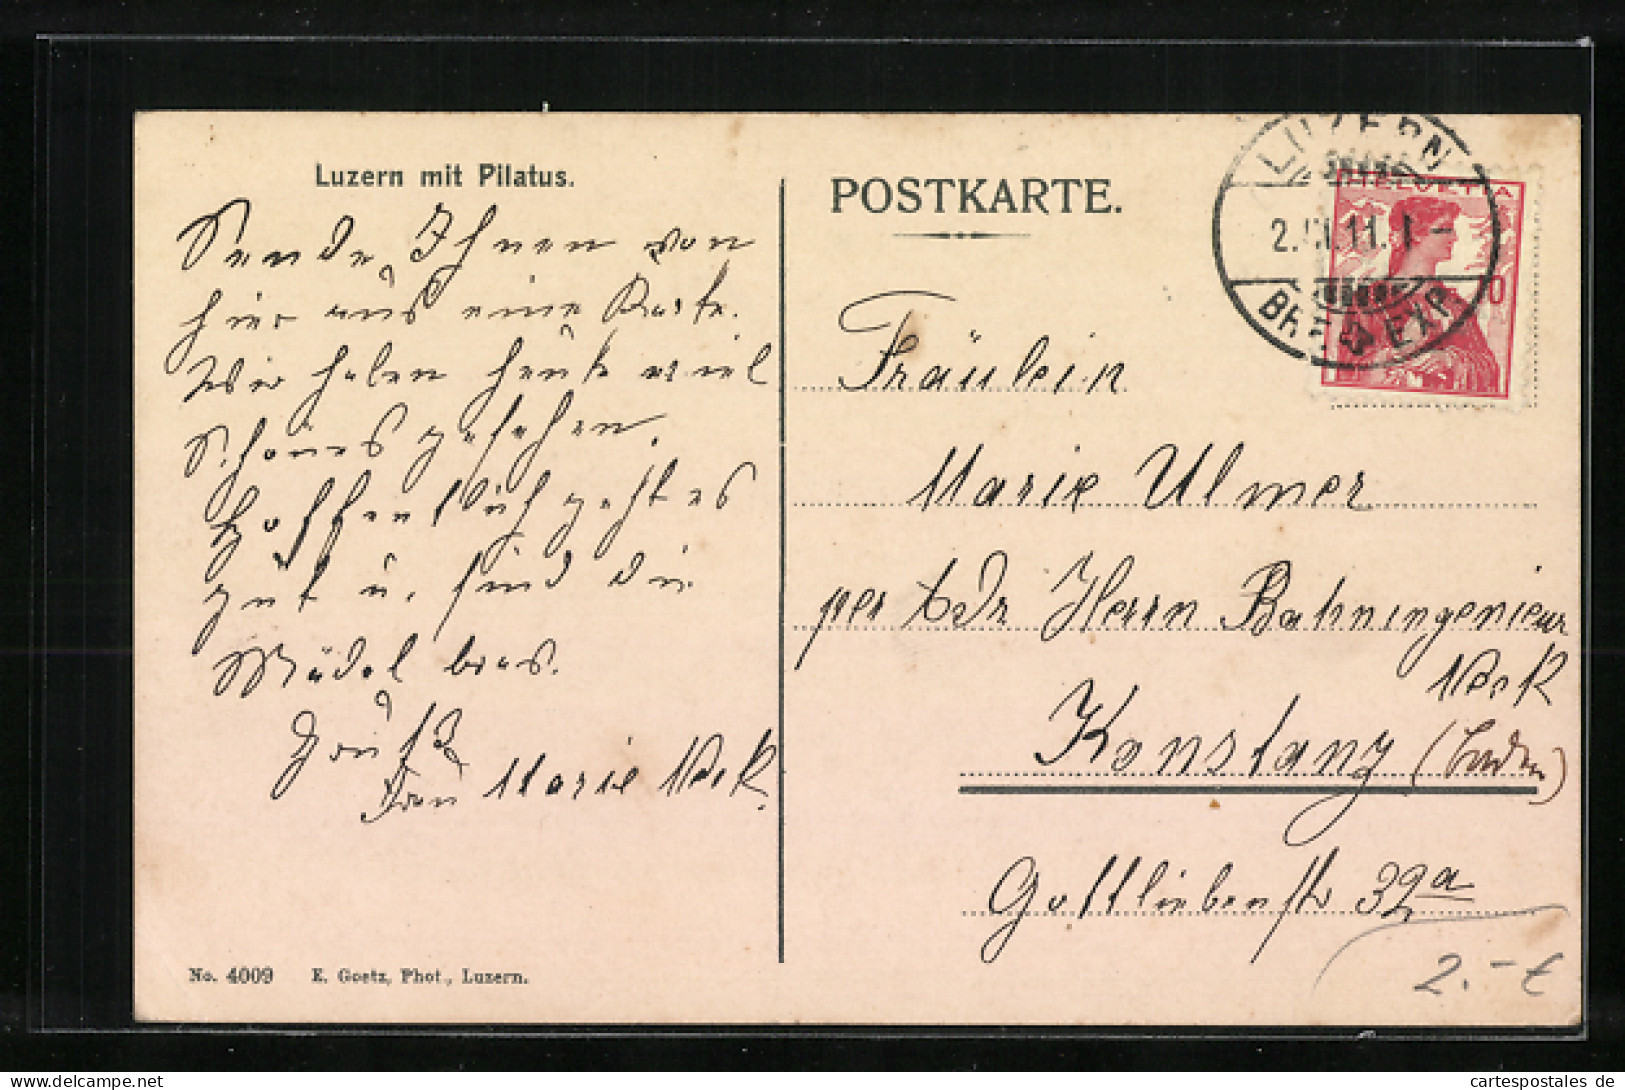 Luzern mit Pilatus.
Sende Ihnen von
hier aus eine Karte.
Wir haben heute viel
Schönes gesehen.
Hoffentlich geht es
gut u. sind die
Mädel brav.
Gruß
Frau Marie Neck.
No. 4009 E. Goetz, Phot., Luzern.
POSTKARTE.
LUZERN
2. 11. 1 -
BRF. EXP.
HELVETIA
10
Fräulein
Marie Ulmer
per Adr Herrn Bahningenieur
Neck
Konstanz (Baden)
Gottliebenstr 32a
2.-€
cartespostales de